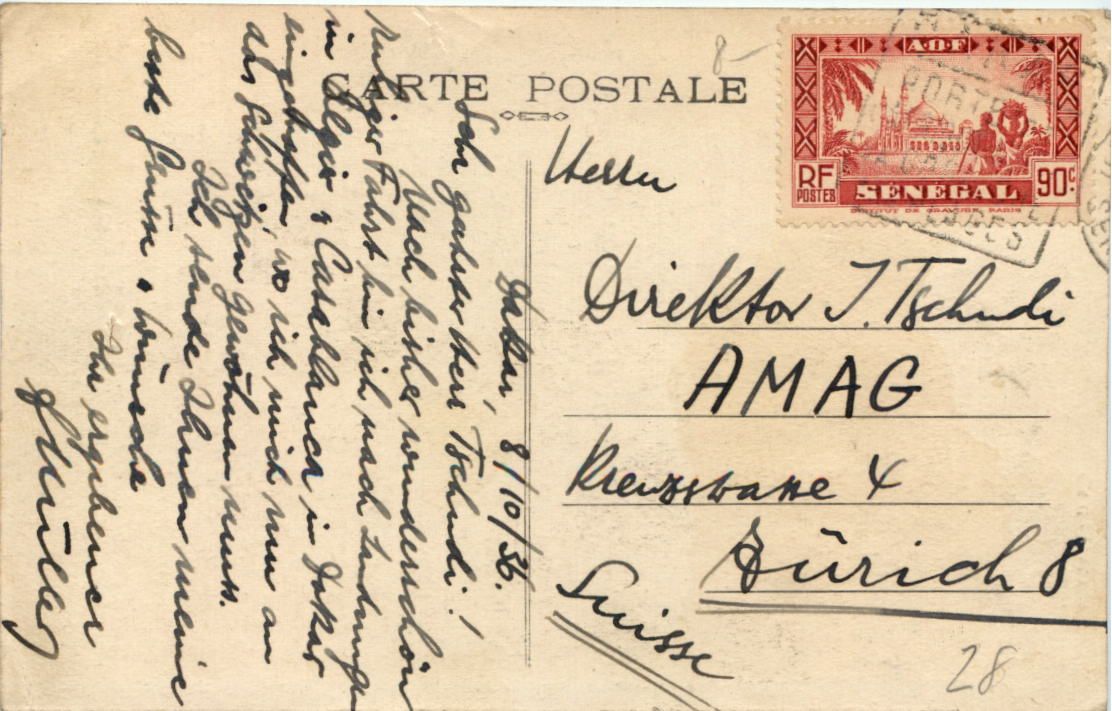 CARTE POSTALE
Dakar, 8/10/36.
Sehr geehrter Herr Tschudi!
Nach bisher wunderschön
ruhiger Fahrt bin ich nach Landungen
in Algier & Casablanca in Dakar
eingetroffen, wo ich mich nun an
das Schwitzen gewöhnen muss.
Ich sende Ihnen meine
beste Grüsse & Wünsche
Ihr ergebener
Müller
8-
A.O.F
RF
POSTES
SÉNÉGAL
90c
INSTITUT DE GRAVURE PARIS
Herrn
Direktor J. Tschudi
AMAG
Kreuzstrasse 4
Zürich 8
Suisse
28